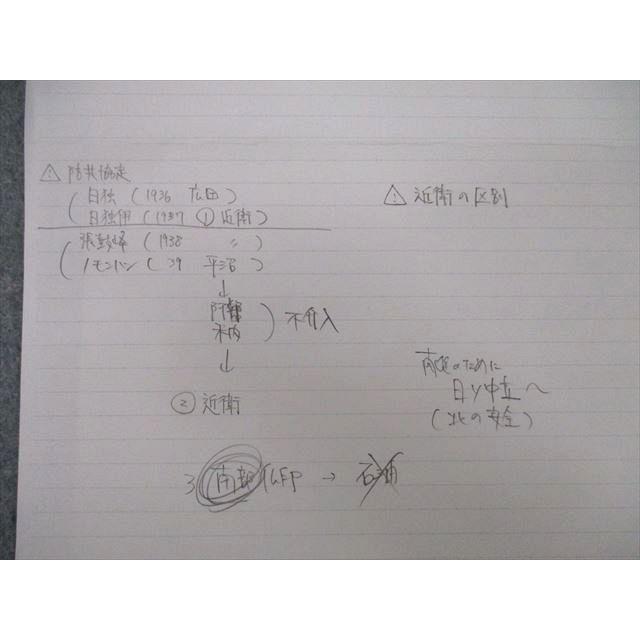 ⚠ 防共協定
日独 (1936 広田)
日独伊 (1937 ① 近衛)
張鼓峰 (1938 〃)
ノモンハン ( 39 平沼)
↓
阿部
米内
) 不介入
↓
② 近衛
⚠ 近衛の区別
南進のために
日ソ中立へ
(北の安全)
3 南部仏印 → 石油